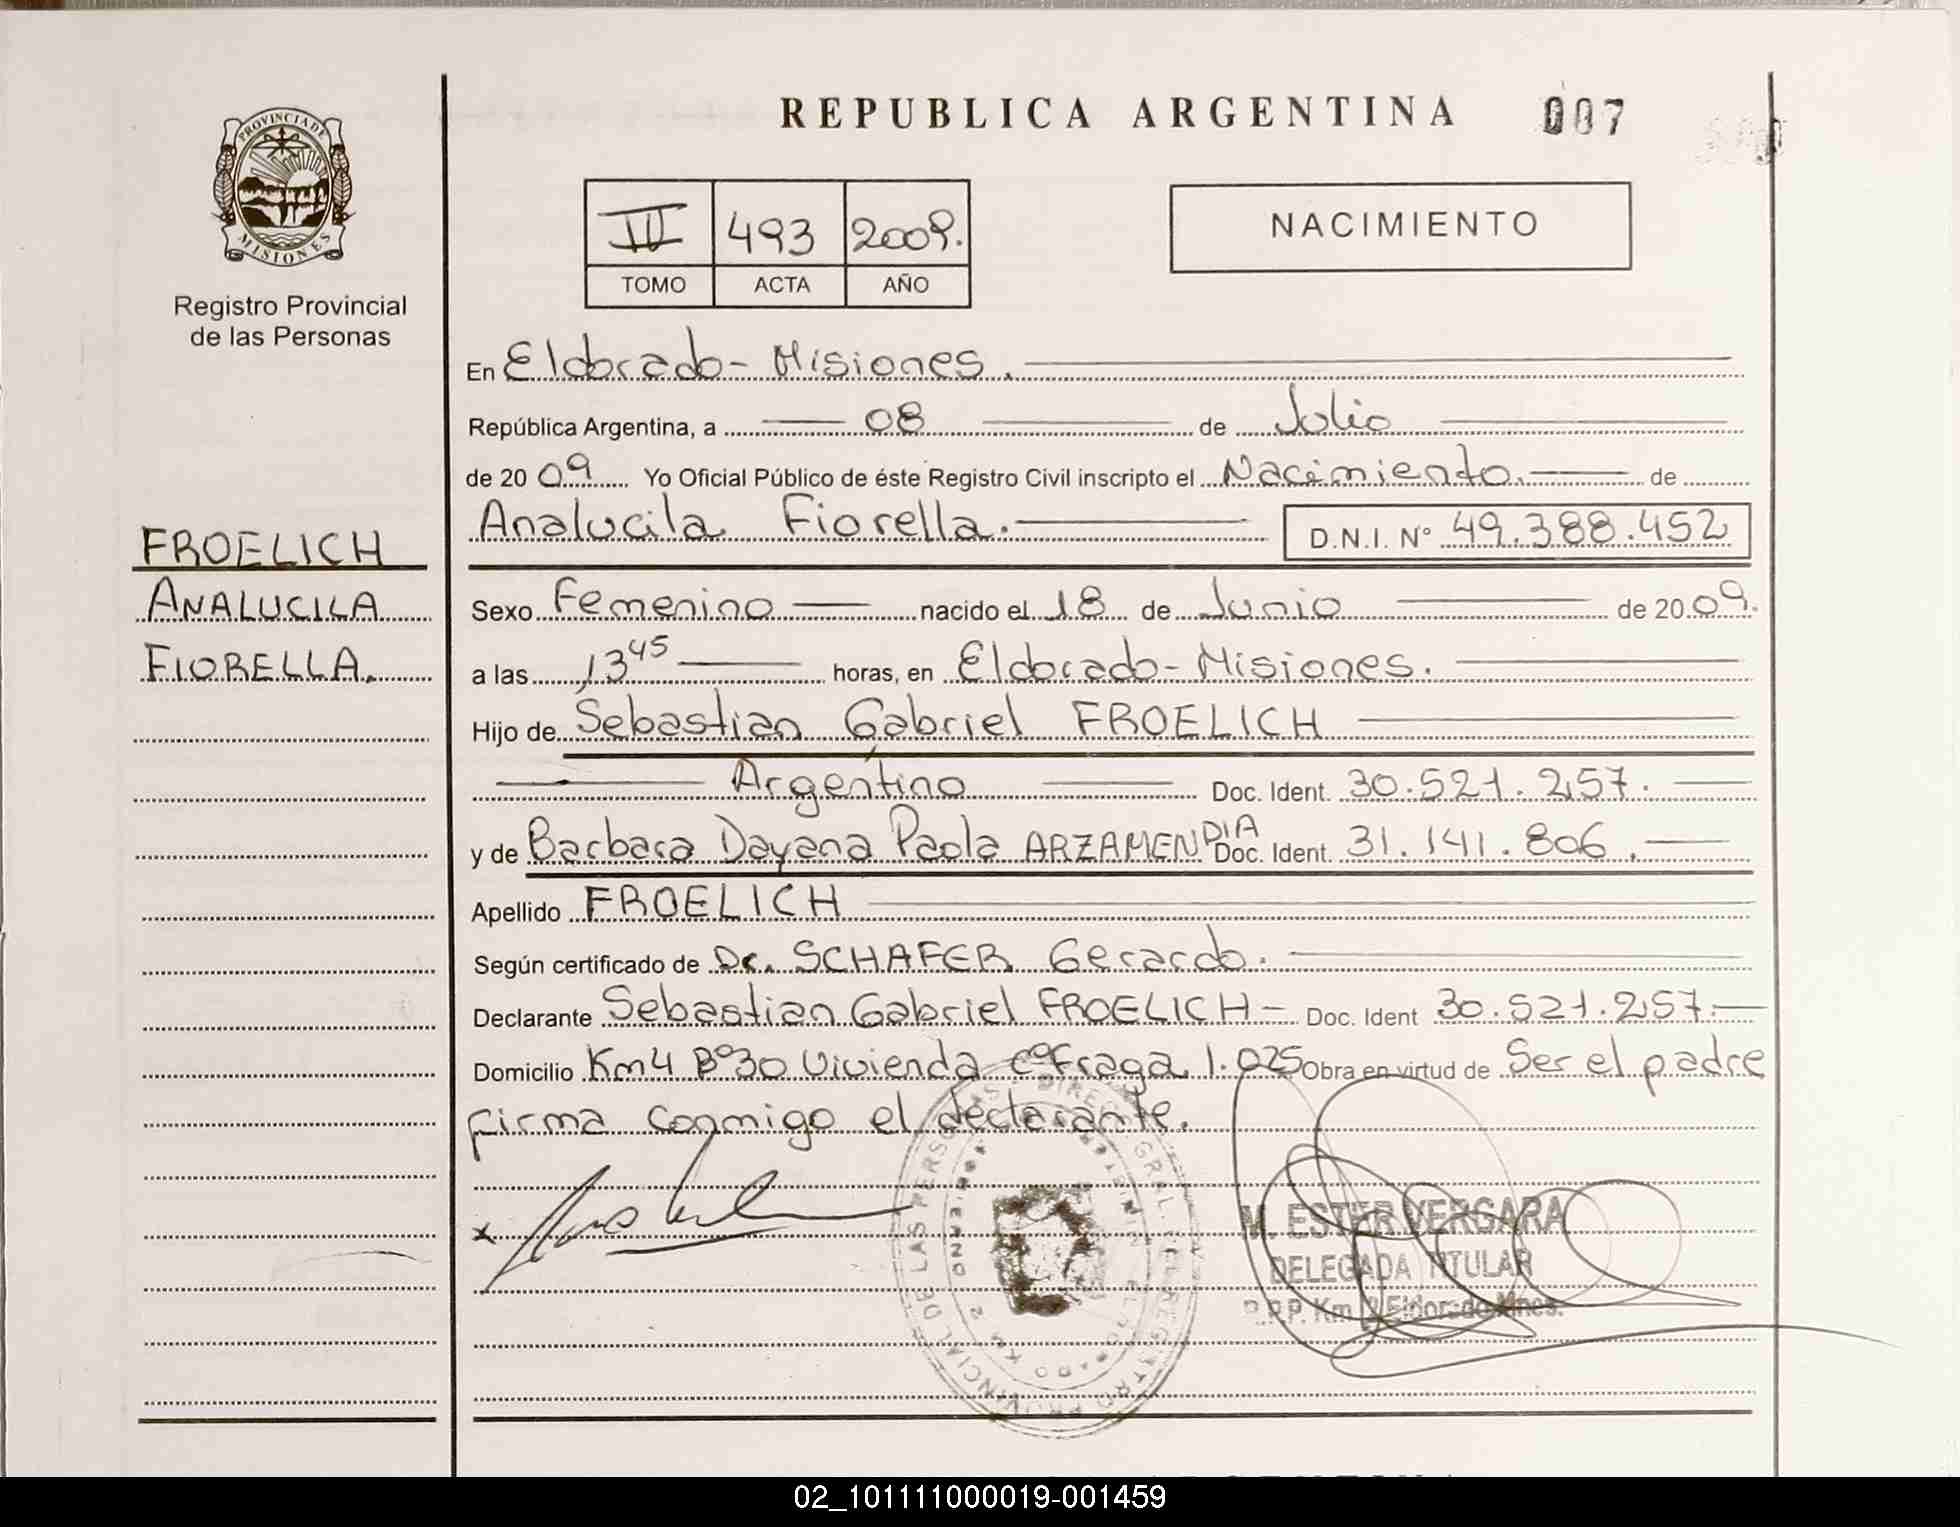 REPUBLICA ARGENTINA 007
PROVINCIA DE
MISIONES
Registro Provincial
de las Personas
III 493 2009.
TOMO ACTA AÑO
NACIMIENTO
En Eldorado - Misiones.
República Argentina, a 08 de Julio
de 20 09 Yo Oficial Público de éste Registro Civil inscripto el Nacimiento. de
Analucila Fiorella. D.N.I. N° 49.388.452
FROELICH
ANALUCILA
FIORELLA.
Sexo Femenino nacido el 18 de Junio de 20 09.
a las 13 45 horas, en Eldorado - Misiones.
Hijo de Sebastian Gabriel FROELICH
Argentino Doc. Ident. 30.521.257.
y de Barbara Dayana Paola ARZAMENDIA Doc. Ident. 31.141.806.
Apellido FROELICH
Según certificado de Dr. SCHAFER Gerardo.
Declarante Sebastian Gabriel FROELICH - Doc. Ident 30.521.257.
Domicilio Km4 B°30 Vivienda C° Fraga 1.025 Obra en virtud de Ser el padre
firma conmigo el declarante.
M. ESTER VERGARA
DELEGADA TITULAR
R.P.P. Km 2 Eldorado Mnes.
02_101111000019-001459